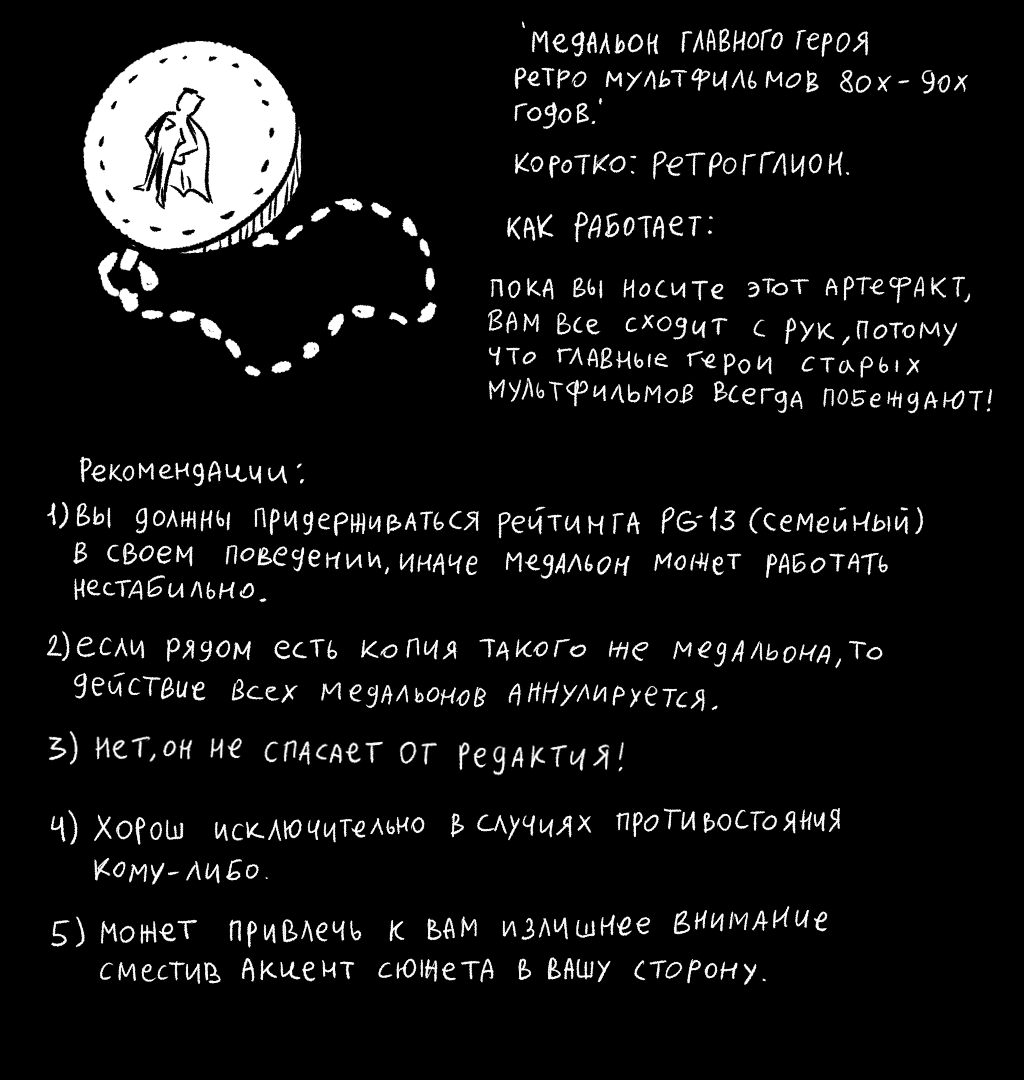 'Медальон главного героя
ретро мультфильмов 80х-90х
годов.'
Коротко: Ретрогглион.
Как работает:
Пока вы носите этот артефакт,
вам все сходит с рук, потому
что главные герои старых
мультфильмов всегда побеждают!
Рекомендации:
1) Вы должны придерживаться рейтинга PG-13 (семейный)
в своем поведении, иначе медальон может работать
нестабильно.
2) если рядом есть копия такого же медальона, то
действие всех медальонов аннулируется.
3) Нет, он не спасает от редактия!
4) Хорош исключительно в случиях противостояния
кому-либо.
5) Может привлечь к вам излишнее внимание
сместив акцент сюжета в вашу сторону.